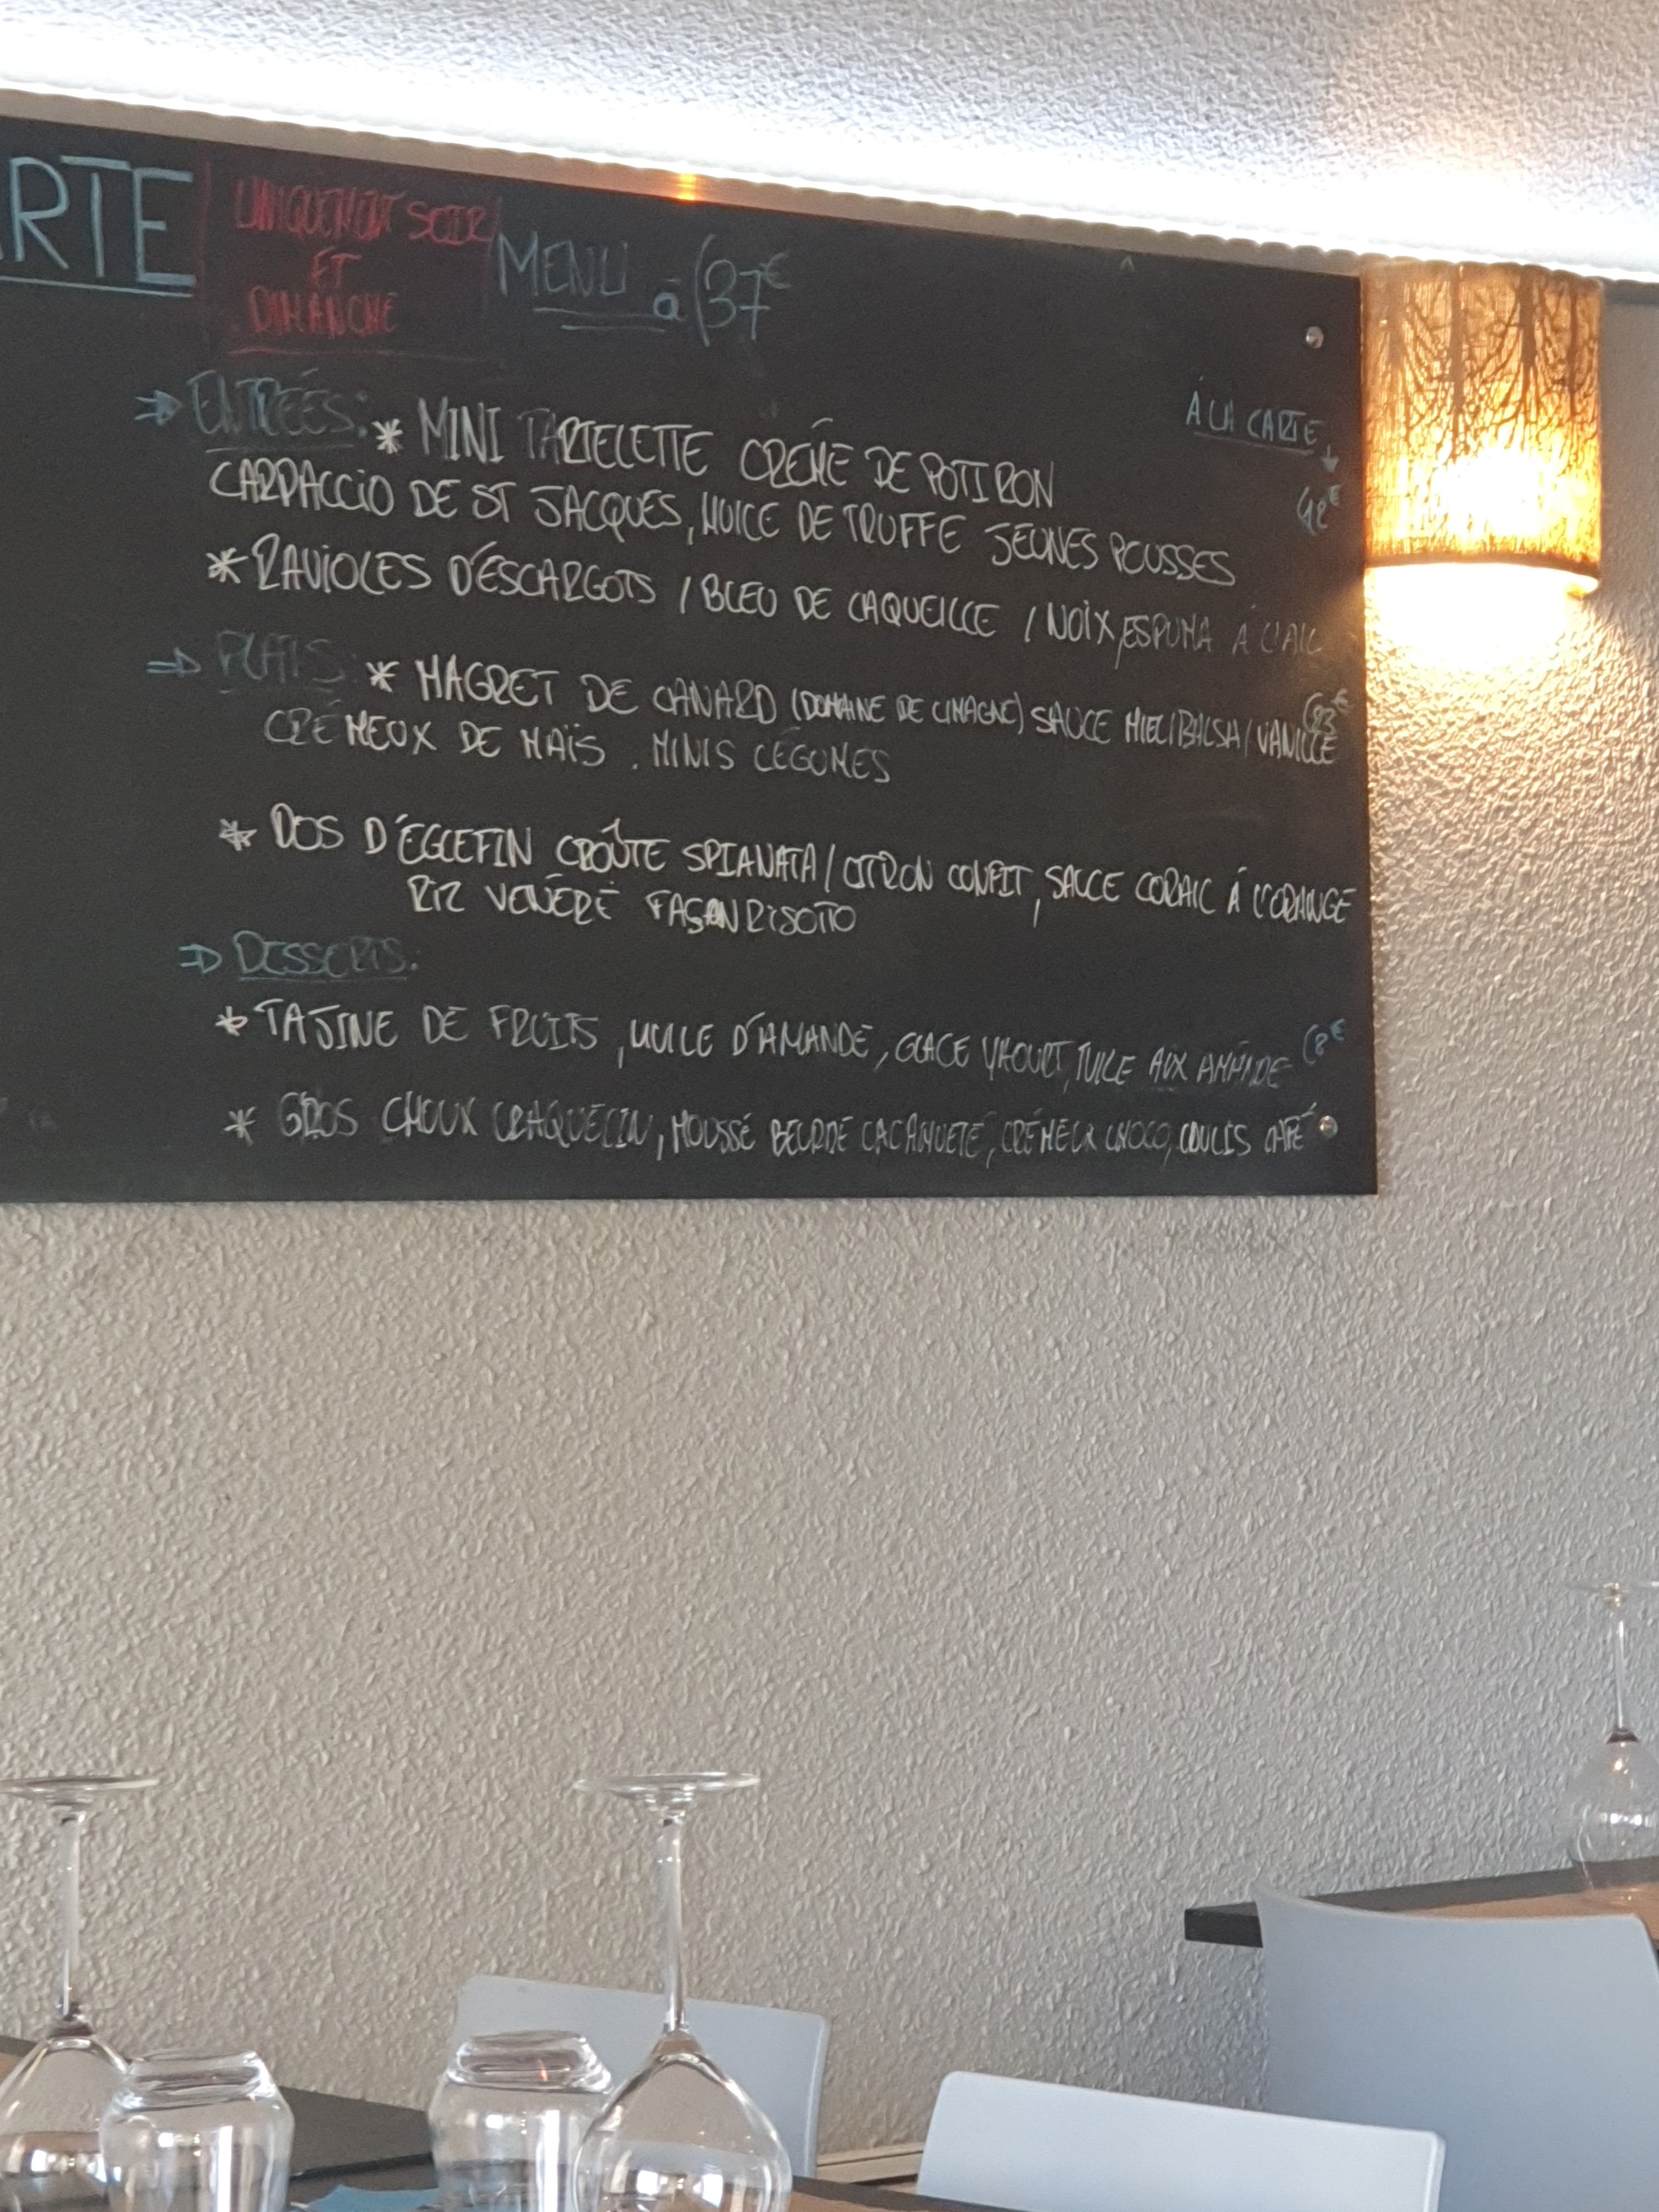 ARTE
UNIQUEMENT SOIR
ET
DIMANCHE
MENU à 37€
À LA CARTE
⇒ ENTRÉES: * MINI TARTELETTE CRÈME DE POTIRON
CARPACCIO DE ST JACQUES, HUILE DE TRUFFE JEUNES POUSSES
* RAVIOLES D'ESCARGOTS / BLEU DE LAQUEILLE / NOIX, ESPUMA À L'AIL
⇒ PLATS: * MAGRET DE CANARD (DOMAINE DE LIMAGNE) SAUCE MIEL/BALSA/VANILLE
CRÉMEUX DE MAÏS . MINIS LÉGUMES
* DOS D'ÉGLEFIN CROÛTE SPIANATA / CITRON CONFIT, SAUCE CORAIL À L'ORANGE
RIZ VENÉRÉ FAÇON RISOTTO
⇒ DESSERTS:
* TAJINE DE FRUITS, HUILE D'AMANDE, GLACE YAOURT, TUILE AUX AMANDE 8€
* GROS CHOUX CRAQUELIN, MOUSSE BEURRE CACAHUETE, CRÉMEUX CHOCO, COULIS CAFÉ